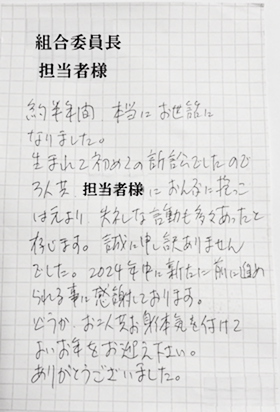 組合委員長
担当者様
約半年間 本当にお世話に
なりました。
生まれて初めての訴訟でしたので
3人共 担当者様 におんぶに抱っこ
はもとより 失礼な言動も多々あったと
存じます。誠に申し訳ありません
でした。2024年中に新たに前に進め
られる事に感謝しております。
どうか、お二人共お身体気を付けて
よいお年をお迎え下さい。
ありがとうございました。